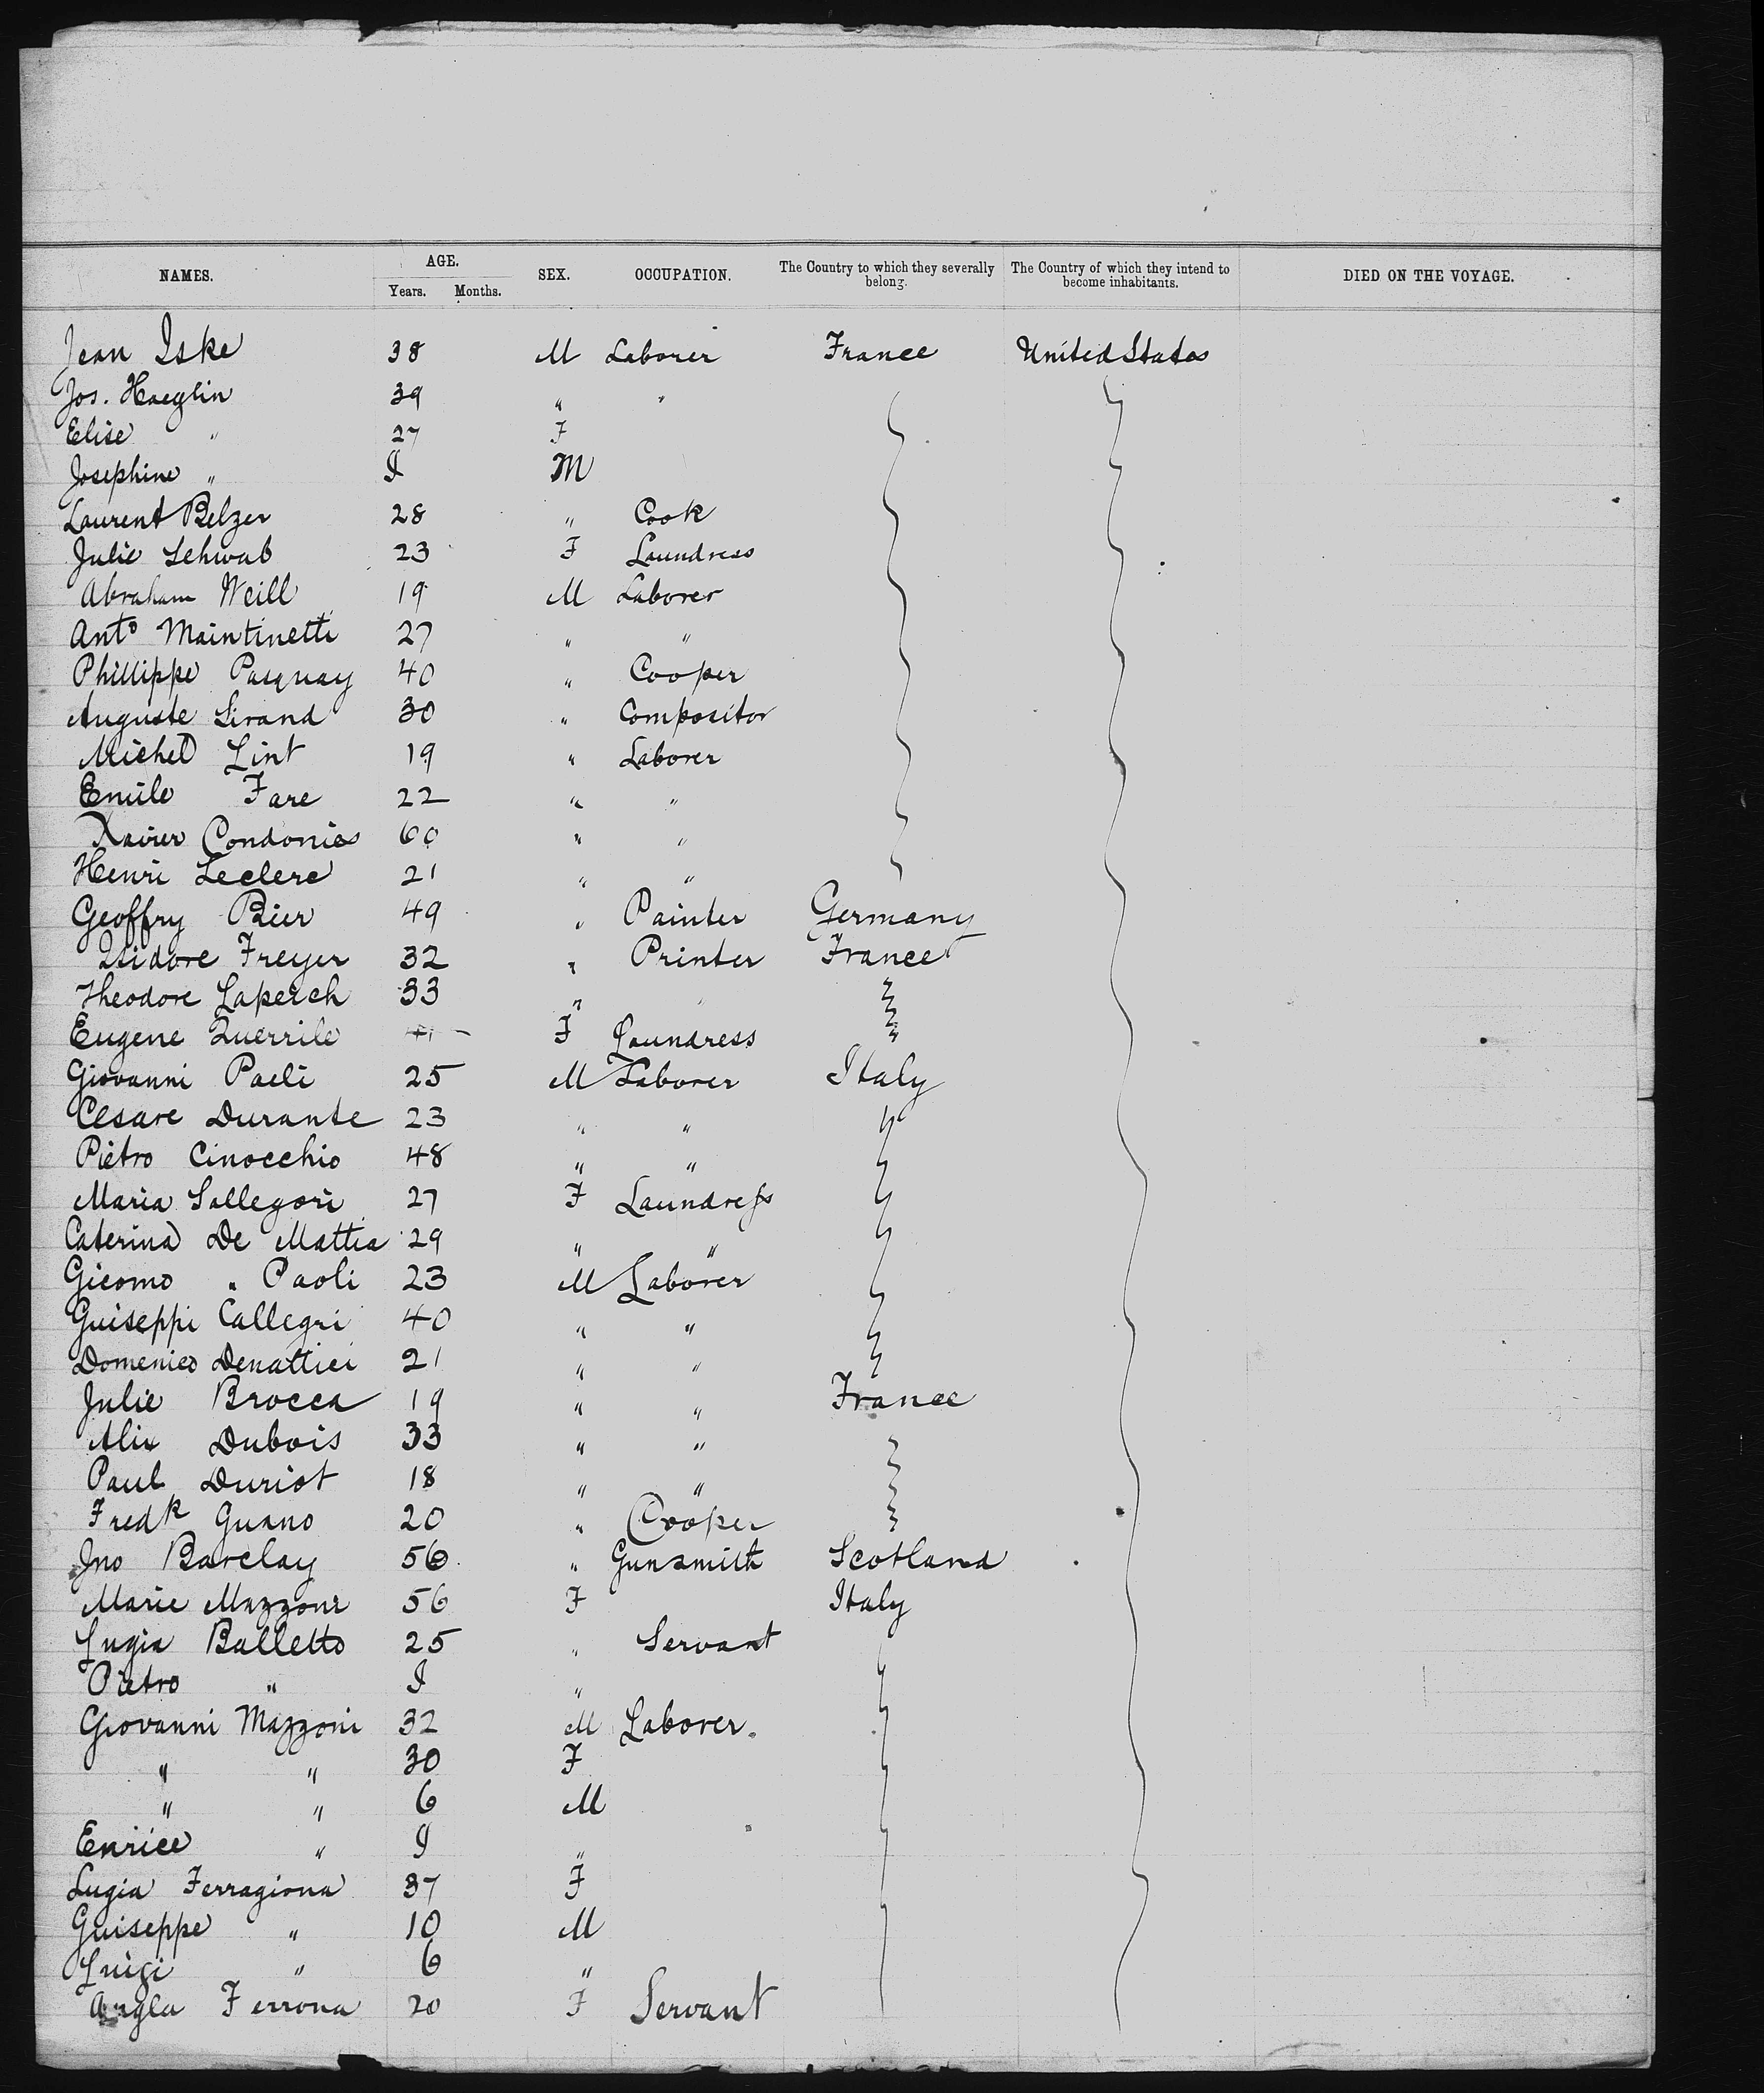 NAMES. AGE. SEX. OCCUPATION. The Country to which they severally belong. The Country of which they intend to become inhabitants. DIED ON THE VOYAGE.
Years. Months.
Jean Iske 38 M Laborer France United States
Jos. Haeglin 39 " "
Elise " 27 F
Josephine " I M
Laurent Belzer 28 " Cook
Julie Schwab 23 F Laundress
Abraham Weill 19 M Laborer
Anto Maintinetti 27 " "
Phillippe Pasquay 40 " Cooper
Auguste Sirand 30 " Compositor
Michel Lint 19 " Laborer
Emile Fare 22 " "
Xavier Condonies 60 " "
Henri Leclerc 21 " "
Geoffry Bier 49 " Painter Germany
Isidore Freyer 32 " Printer France
Theodore Laperch 33 " "
Eugene Querrile F Laundress
Giovanni Paeli 25 M Laborer Italy
Cesare Durante 23 " "
Pietro Cinocchio 48 " "
Maria Sallegori 27 F Laundress
Caterina De Mattia 29 " "
Gicomo " Paoli 23 M Laborer
Guiseppi Callegri 40 " "
Domenico Denattiei 21 " "
Julie Brocca 19 " " France
Alix Dubois 33 " "
Paul Duriot 18 " "
Fredk Guano 20 " Cooper
Jno Barclay 56 " Gunsmith Scotland
Marie Mazzoni 56 F Italy
Lugia Balletto 25 " Servant
Pietro " I "
Giovanni Mazzoni 32 M Laborer.
" " 30 F
" " 6 M
Enrice " I "
Lugia Ferragiona 37 F
Guiseppe " 10 M
Luigi " 6 "
Angla Ferrona 20 F Servant